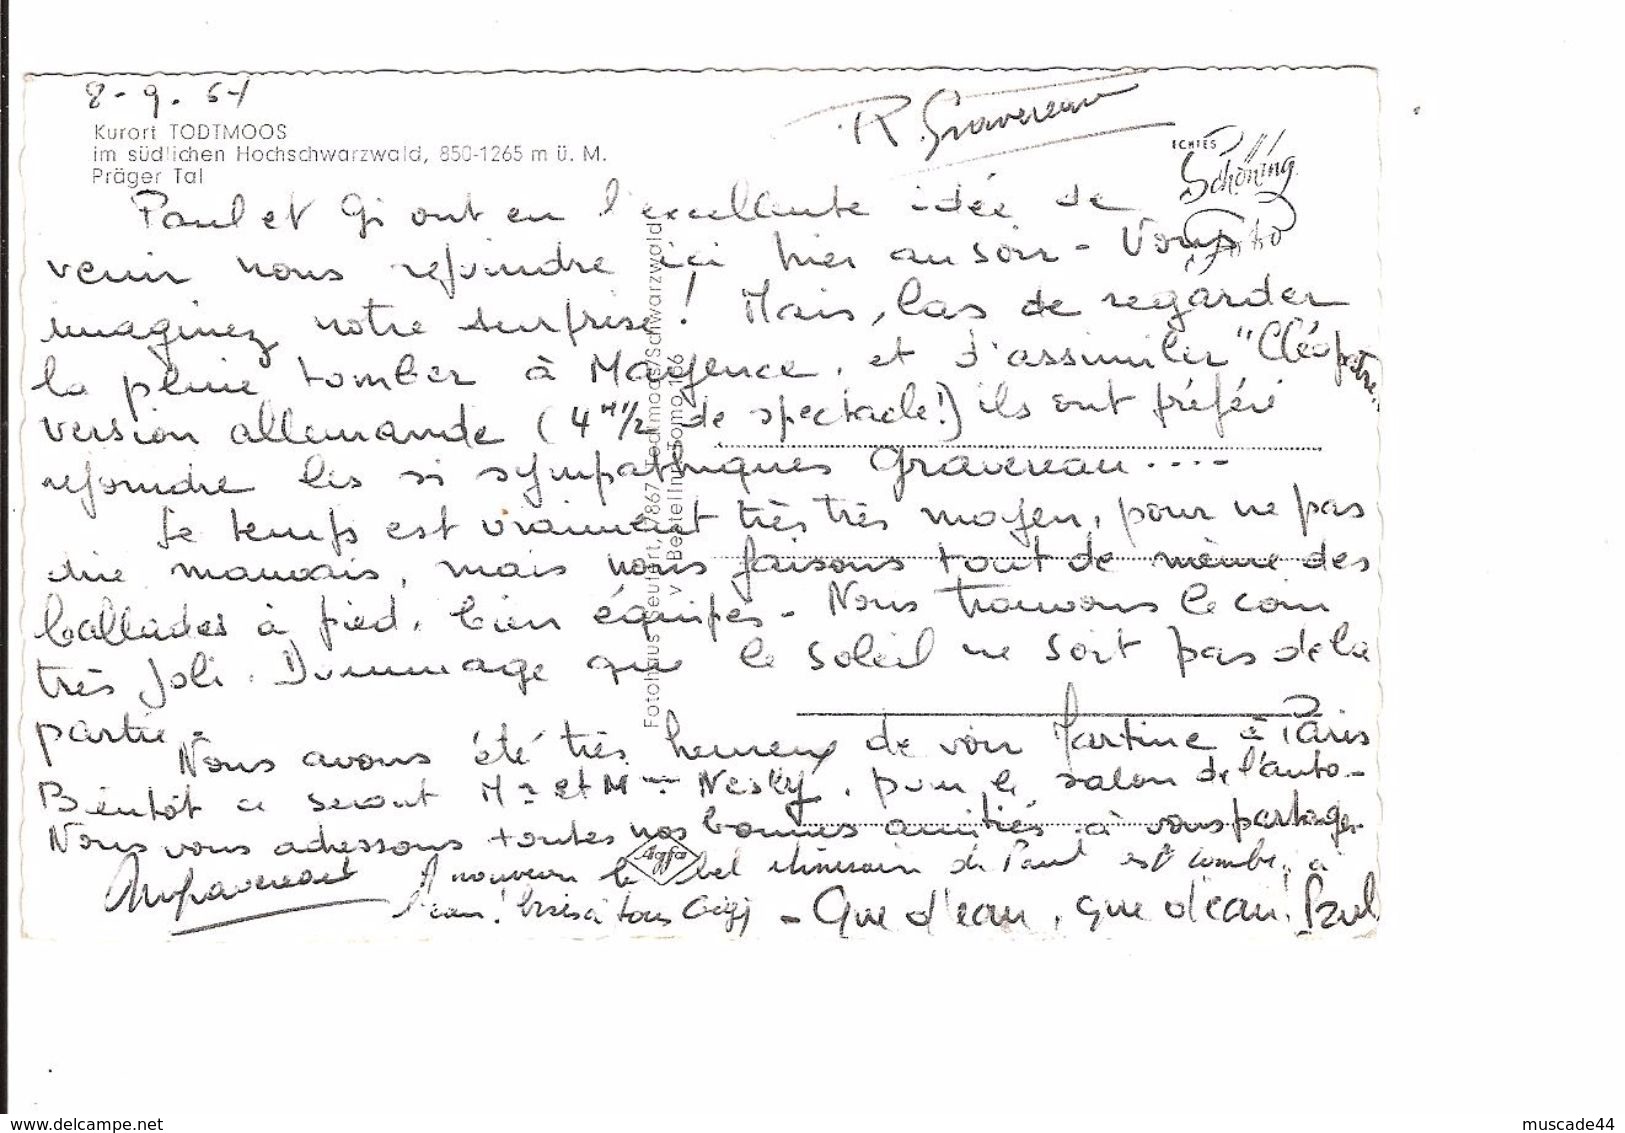 8-9.64
R. Gravereau
Kurort TODTMOOS
im südlichen Hochschwarzwald, 850-1265 m ü. M.
Präger Tal
ECHTES
Schöning
Foto
Paul et Gi ont eu l'excellente idée de
venir nous rejoindre ici hier au soir - Vous
imaginez notre surprise! Mais, las de regarder
la pluie tomber à Mayence, et d'assimiler "Cléopatre"
version allemande (4 H 1/2 de spectacle!) ils ont préféré
rejoindre les si sympathiques Gravereau....
Le temps est vraiment très très moyen, pour ne pas
dire mauvais, mais nous faisons tout de même des
ballades à pied, bien équipés - Nous trouvons le coin
très joli. Dommage que le soleil ne soit pas de la
partie -
Nous avons été très heureux de voir Martine à Paris
Bientôt ce seront Mr et Mme Nesly, pour le salon de l'auto -
Nous vous adressons toutes nos bonnes amitiés à vous partager
Agfa
MGravereau
nouveau le bel itinéraire de Paul est tombé à
l'eau! bises à tous Gigi - Que d'eau, que d'eau! Paul
Fotohaus Seufert, 7867 Todtmoos/Schwarzwald
Bestellnr. Tomo 166
www.delcampe.net
muscade44